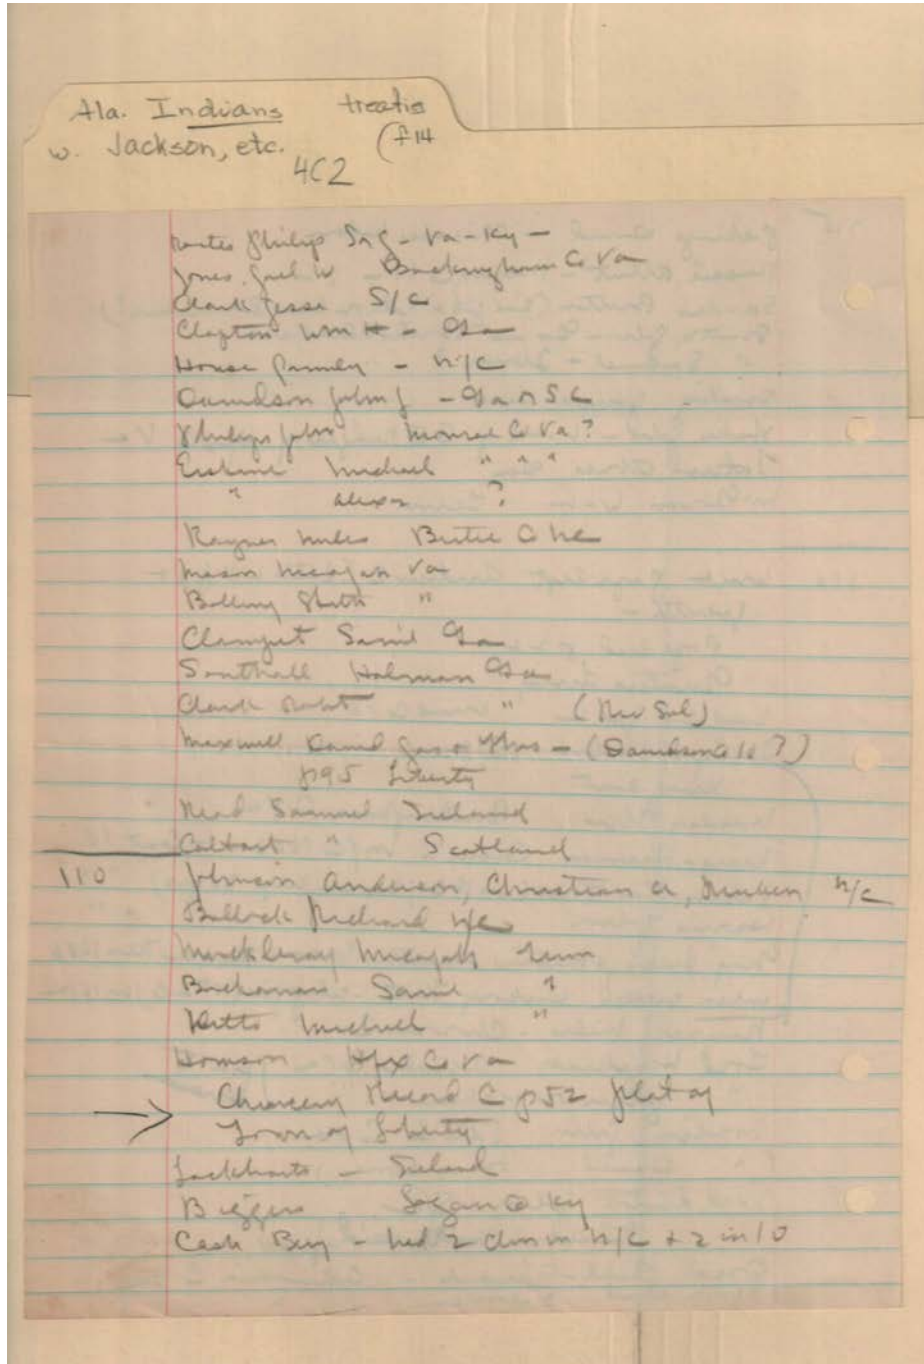 Ala. Indians treatie
(f14
w. Jackson, etc.
4C2
Philip Va - Ky -
Jones Buckingham Co Va
Clark Jesse S/C
Clayton Wm H - Ga
House family - N/C
Davidson John J - Ga S C
Philips John Monroe Co Va ?
Erskine Michael " " "
" Alexr ?
Rayner Miles Bertie Co NC
Mason Micajah Va
Bolling "
Saml Ga
Southall Holman Ga
Clark Robt " (Rev Sol)
Maxwell David Jas & Thos - (Davidson ?)
p95 Liberty
Read Samuel Ireland
Coltart " Scotland
110 Johnson Anderson, Christian A, Reuben N/C
Bullock Richard N/C
Micajah Tenn
Buchanan Saml "
Michael "
Hfx Co Va
Chancery Record C p52 plat of
Town of Liberty
Lockharts - Ireland
Biggers Logan Co Ky
Cash Benj - had 2 in N/C + 2 in